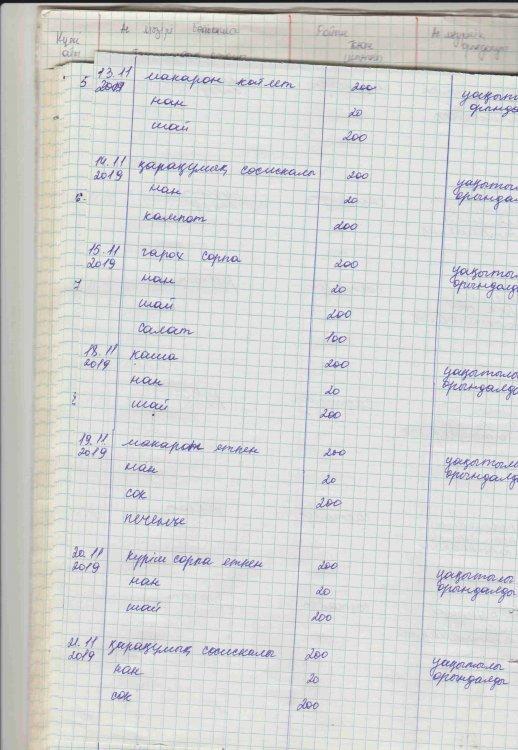 Күні Ас мәзірі Ас мәзірінің
13.11 макарон котлет 200 уақытылы
5 2019 нан 20 орындал
шай 200
14.11 қарақұмық сосискалы 200 уақытыл
2019 нан 20 орындал
6. кампот 200
15.11 гарох сорпа 200 уақытыл
2019 нан 20 орындалд
7 шай 200
салат 100
18.11 каша 200 уақытылы
2019 нан 20 орындалд
шай 200
19.11 макарон етпен 200 уақытылы
2019 нан 20 орындалд
сок 200
печенье
20.11 күріш сорпа етпен 200 уақытылы
2019 нан 20 орындалды
шай 200
21.11 қарақұмық сосискалы 200 уақытылы
2019 нан 20 орындалды
сок 200